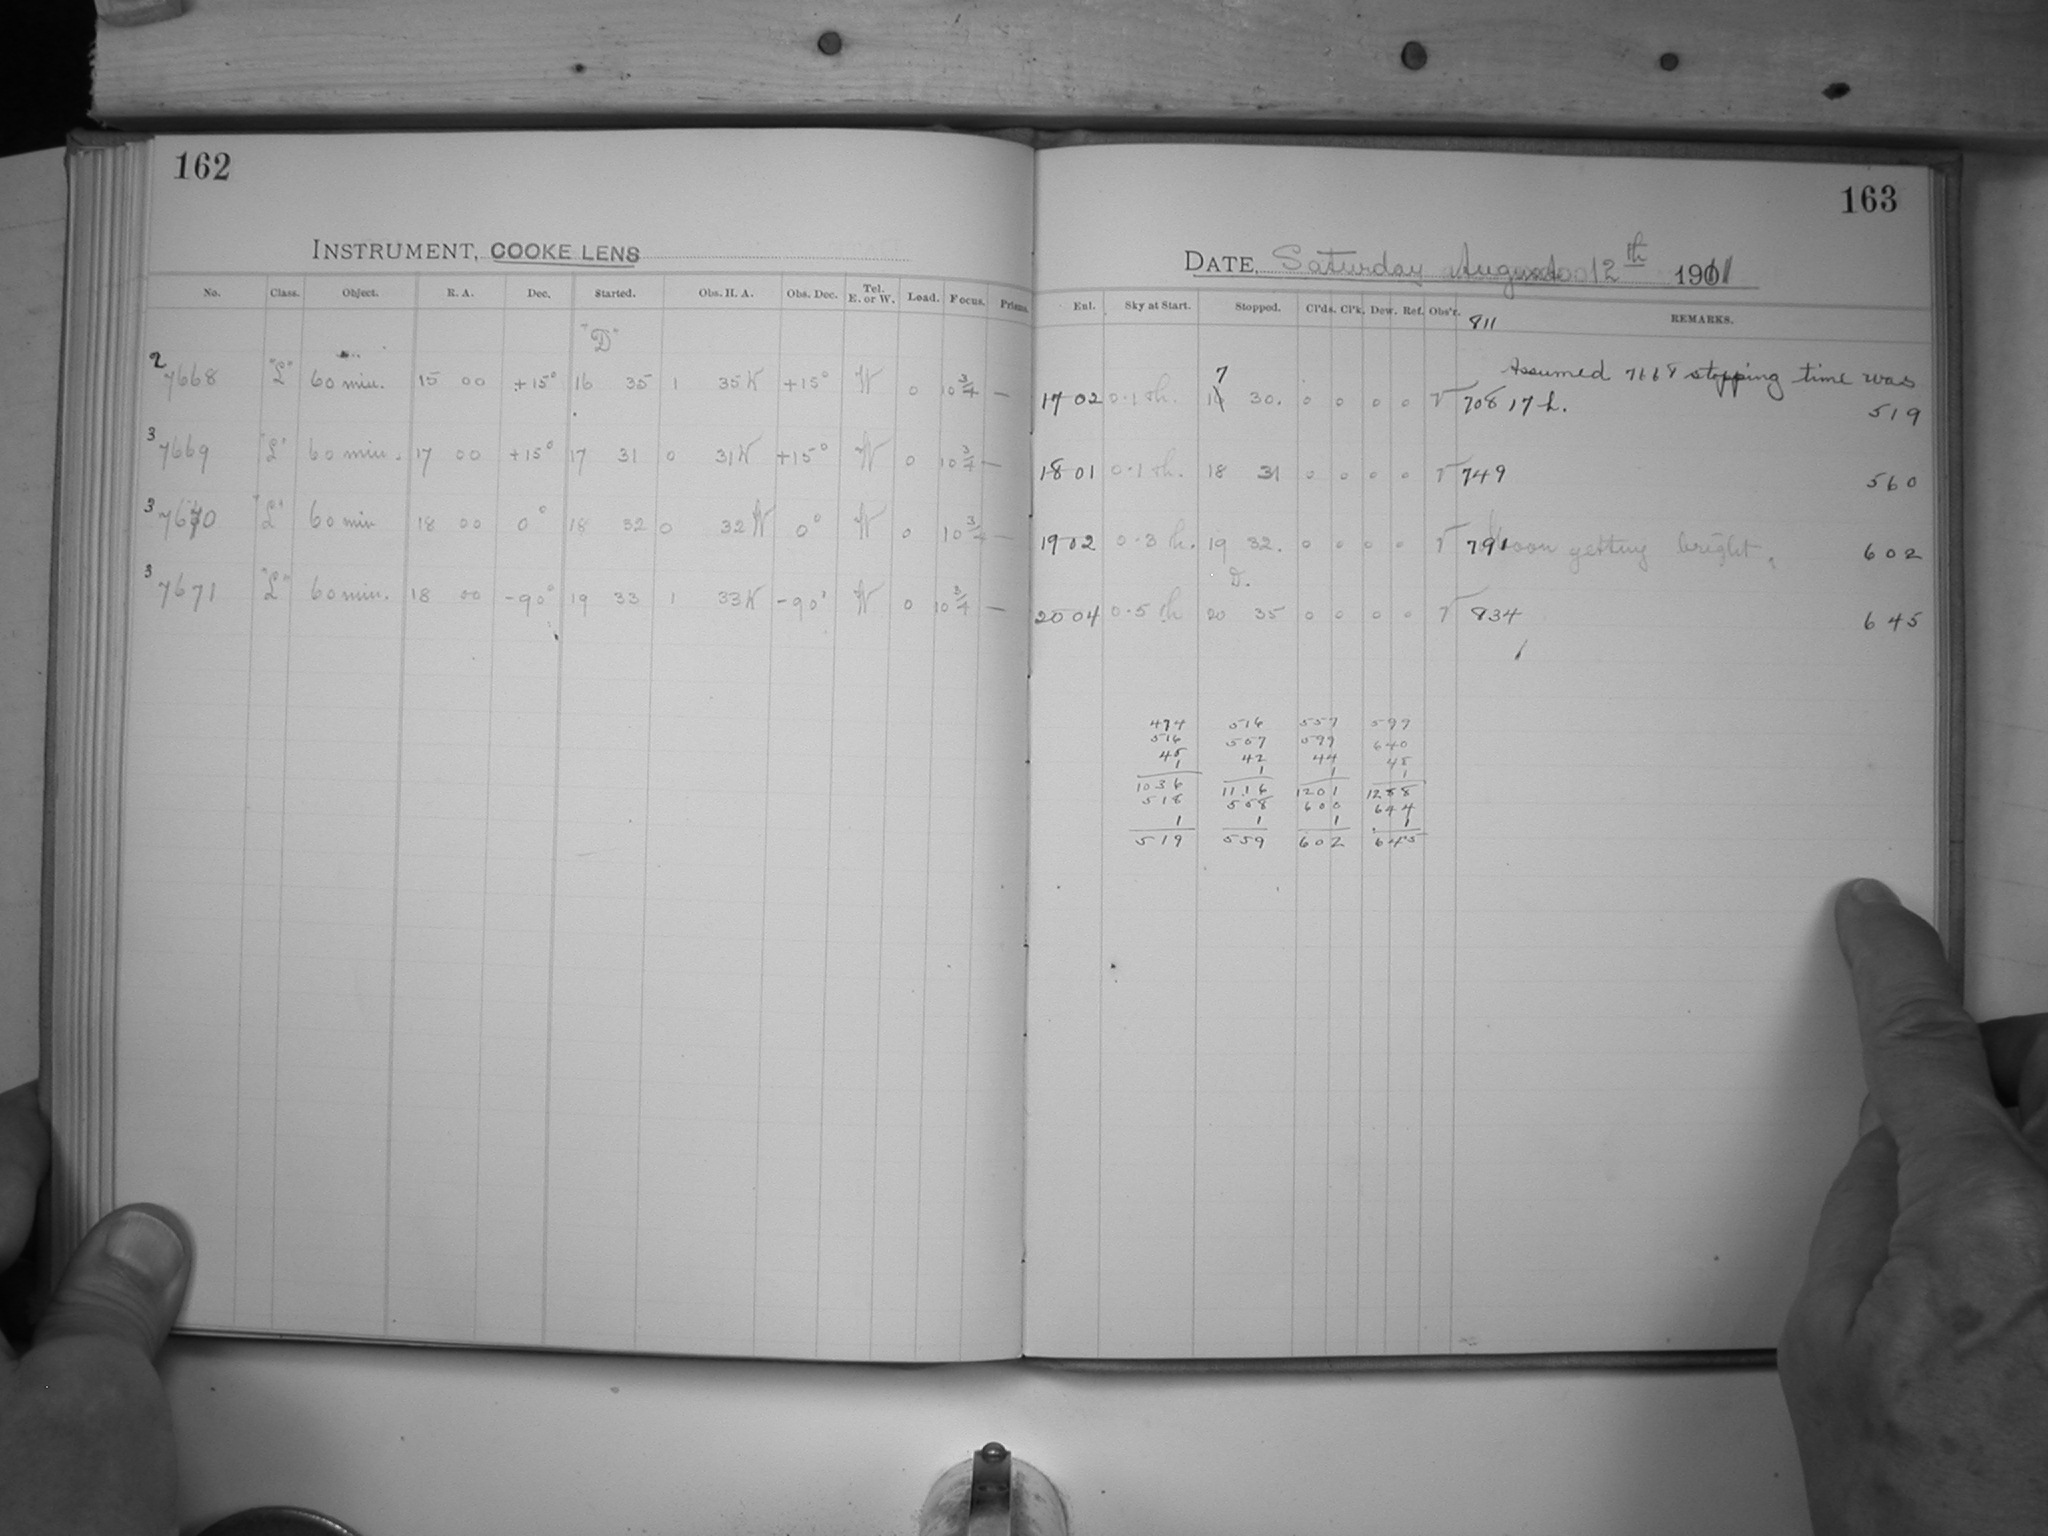 162
163
INSTRUMENT, COOKE LENS
DATE, Saturday August 12th 1911
No. Class. Object. R. A. Dec. Started. Obs. H. A. Obs. Dec. Tel. E. or W. Load. Focus. Prisms.
Enl. Sky at Start. Stopped. Cl'ds. Cl'k. Dew. Ref. Obs'r. REMARKS.
811
"D"
2 7668 "L" 60 min. 15 00 +15° 16 35 1 35 W +15° W 0 10 3/4 —
17 02 0.1 th. 7 30. 0 0 0 0 708 Assumed 7668 stopping time was 17 h. 519
3 7669 "L" 60 min. 17 00 +15° 17 31 0 31 W +15° W 0 10 3/4 —
18 01 0.1 th. 18 31 0 0 0 0 749 560
3 7670 "L" 60 min 18 00 0° 18 32 0 32 W 0° W 0 10 3/4 —
19 02 0.3 th. 19 32. 0 0 0 0 791 Moon getting bright. 602
D.
3 7671 "L" 60 min. 18 00 -90° 19 33 1 33 W -90° W 0 10 3/4 —
20 04 0.5 th 20 35 0 0 0 0 834 645
474 516 557 597
516 557 599 640
45 42 44 45
1 1 1 1
1036 1116 1201 1288
518 558 600 644
1 1 1 1
519 559 602 645